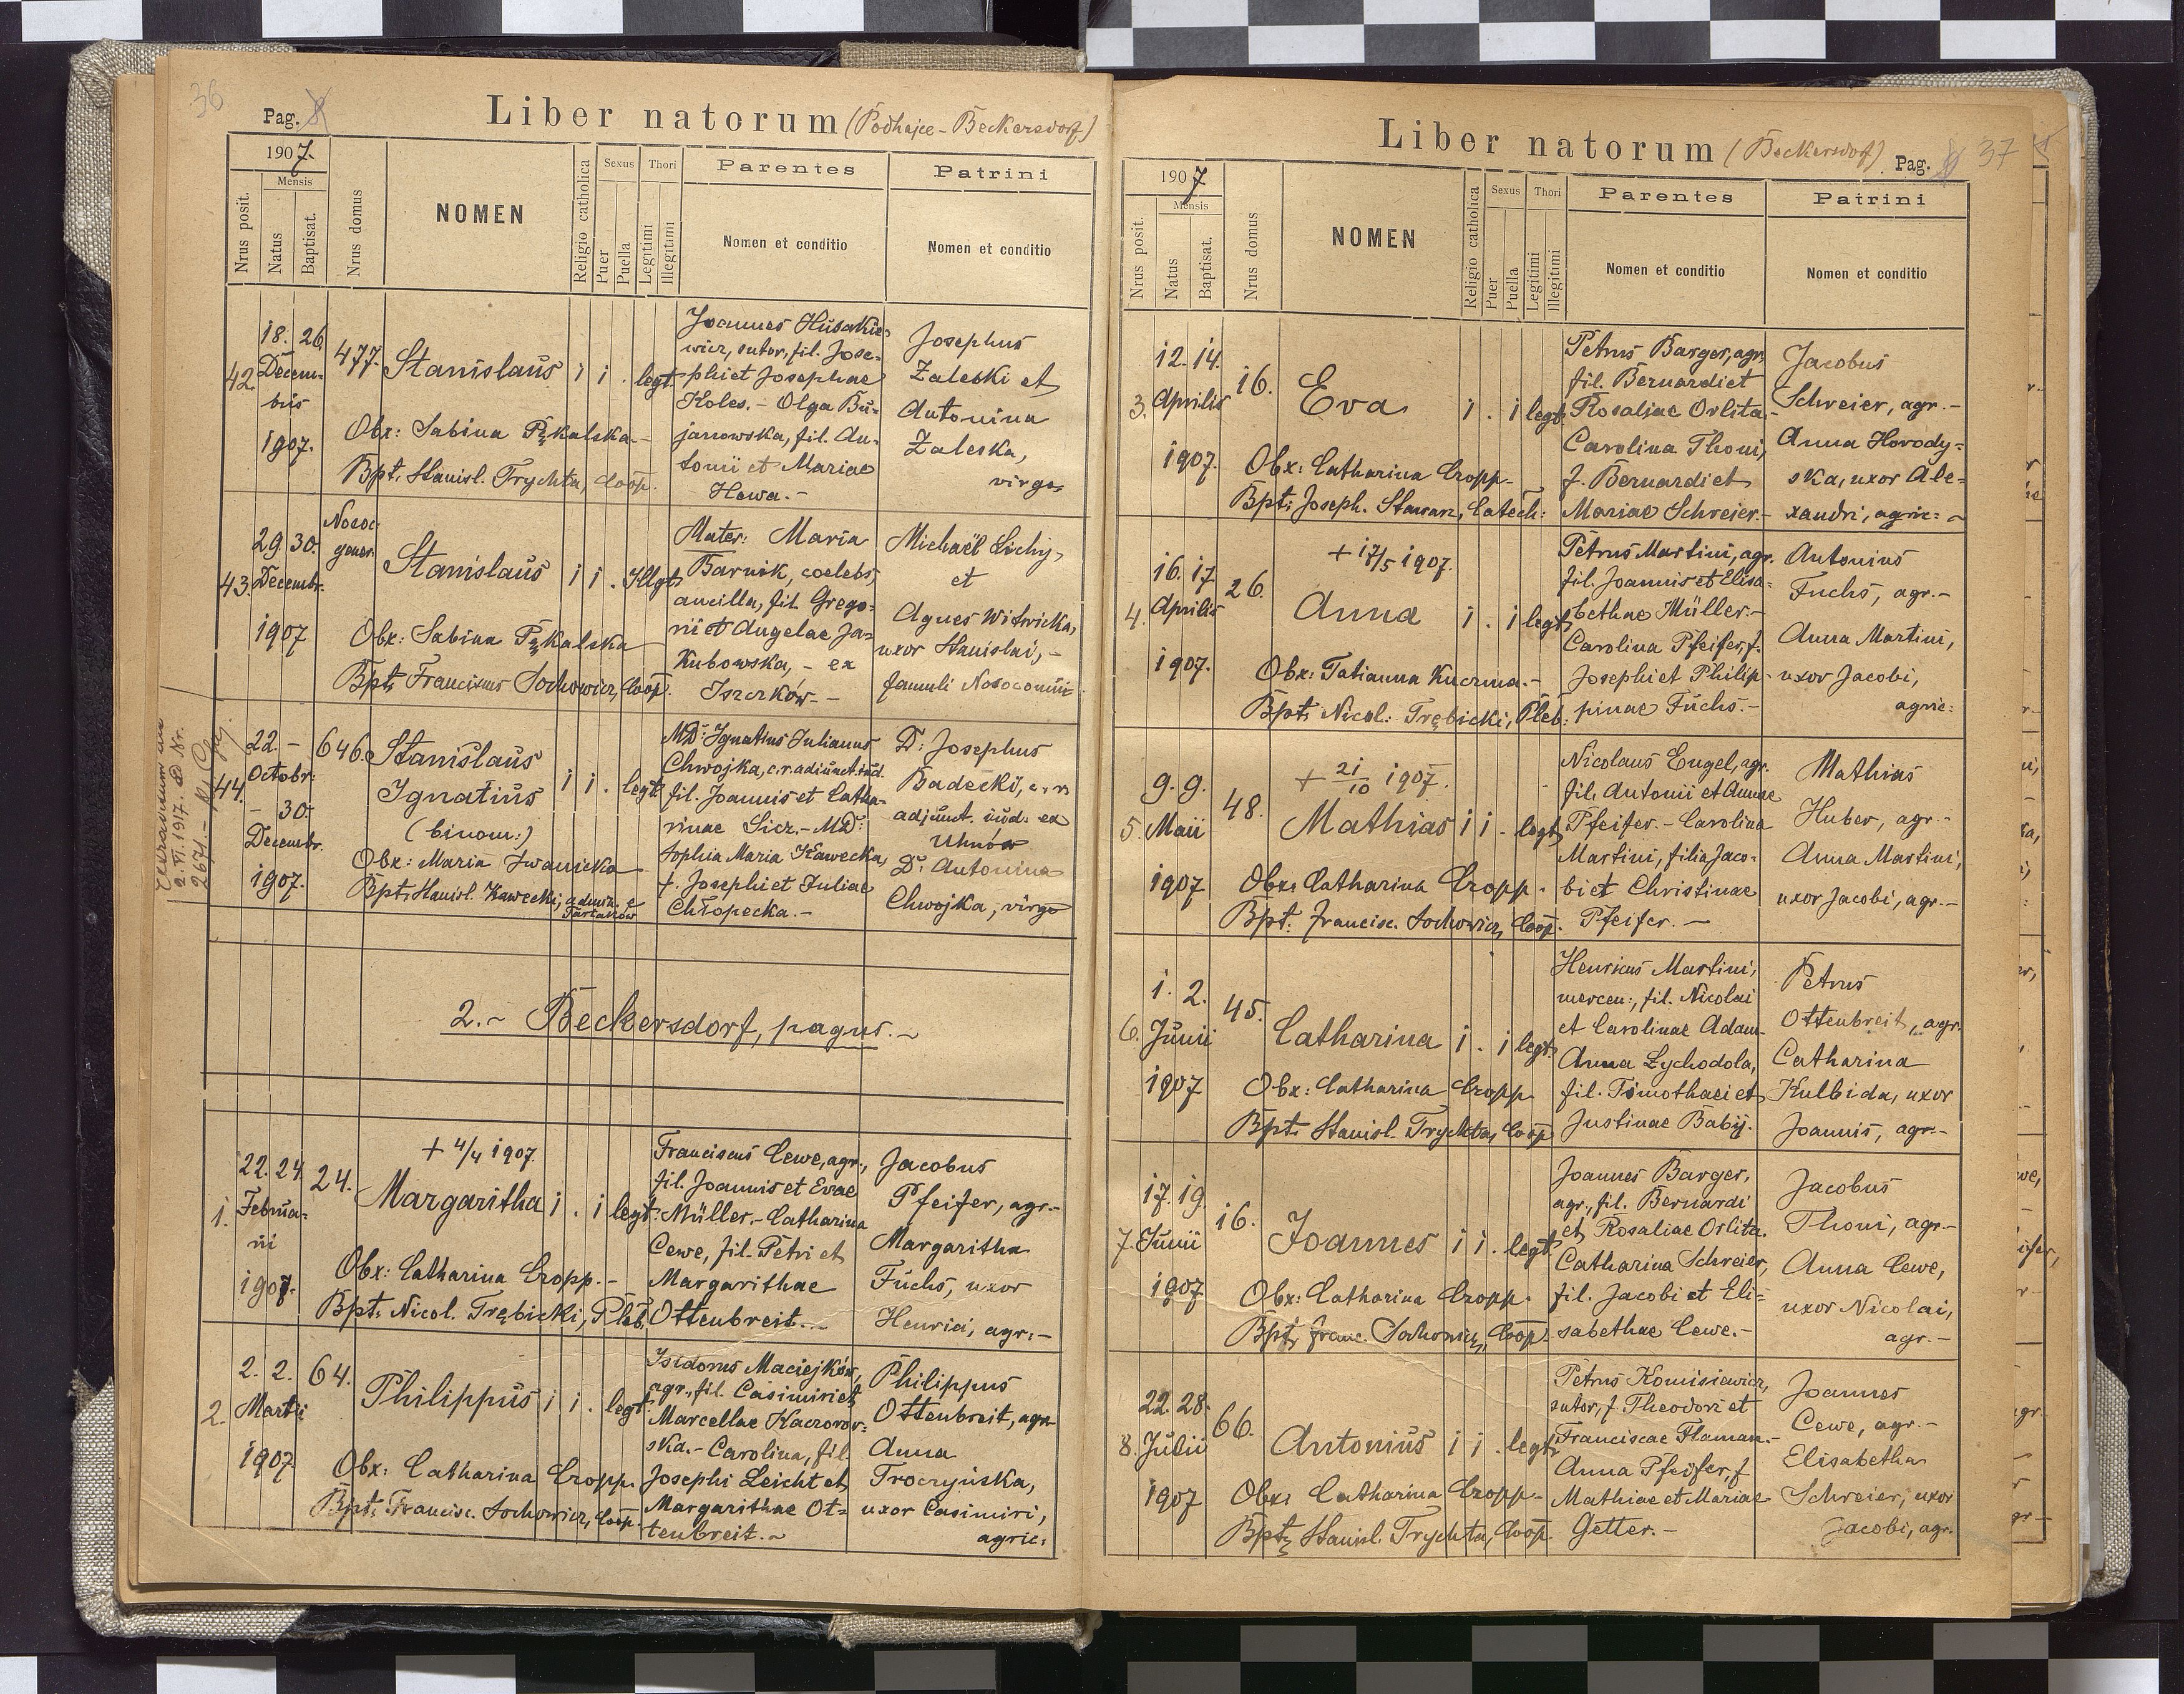 36
Pag. 8
Liber natorum (Podhajce-Beckersdorf)
1907.
Nrus posit.
Mensis
Natus
Baptisat.
Nrus domus
NOMEN
Religio catholica
Sexus
Puer
Puella
Thori
Legitimi
Illegitimi
Parentes
Nomen et conditio
Patrini
Nomen et conditio
42.
18. 26.
Decem-
bris
1907.
477.
Stanislaus
1 1 . legt.
Obx: Sabina Pękalska -
Bpt. Stanisl. Trychta, Coop.
Joannes Husakie-
wicz, sutor, fil. Jose-
phi et Josephae
Koles. - Olga Bu-
janowska, fil. An-
tonii et Mariae
Hawa. -
Josephus
Zaleski et
Antonina
Zaleska,
virgo
43.
29. 30.
Decembr.
1907
Nosoc.
gener.
Stanislaus
1 1 . Illgt.
Obx: Sabina Pękalska
Bpt. Franciscus Sochowicz, Coop.
Mater: Maria
Barnik, coelebs,
ancilla, fil. Grego-
rii et Angelae Ja-
kubowska, - ex
Iszczków -
Michaël Lichy,
et
Agnes Witwicka,
uxor Stanislai, -
famuli Nosocomii
Extravatum
2. VI. 1917. ad Nr.
2671. -
44.
22. -
Octobr:
- 30.
Decembr.
1907.
646.
Stanislaus
Ignatius
(binom:)
1 1 . legt.
Obx: Maria Iwanicka
Bpt. Stanisl. Kawecki, admin. e
Tartaków
MD: Ignatius Julianus
Chwojka, c.r. adiunct. iud.
fil. Joannis et Catha-
rinae Sicz. - MD:
Sophia Maria Kawecka,
f. Josephi et Juliae
Chłopecka. -
D: Josephus
Badecki, c. r.
adjunct. iud. ex
Uhnów
D: Antonina
Chwojka, virgo
2. - Beckersdorf, pagus. -
1.
22. 24.
Februa-
rii
1907.
24.
+ 4/4 1907.
Margaritha
1 . 1 legt.
Obx: Catharina Cropp. -
Bpt. Nicol. Trębicki, Pleb.
Franciscus Cewe, agr.,
fil. Joannis et Evae
Müller. - Catharina
Cewe, fil. Petri et
Margarithae
Ottenbreit. -
Jacobus
Pfeifer, agr. -
Margaritha
Fuchs, uxor
Henrici, agr. -
2.
2. 2.
Martii
1907
64.
Philippus
1 1 . legt.
Obx: Catharina Cropp.
Bpt. Francisc. Sochowicz, Coop.
Isidorus Maciejków,
agr., fil. Casimiri et
Marcellae Kaczorow-
ska. - Carolina, fil.
Josephi Leicht et
Margarithae Ot-
tenbreit. -
Philippus
Ottenbreit, agr.
Anna
Troczyńska,
uxor Casimiri,
agric:
Liber natorum (Beckersdorf)
Pag. 9 37
1907
Nrus posit.
Mensis
Natus
Baptisat.
Nrus domus
NOMEN
Religio catholica
Sexus
Puer
Puella
Thori
Legitimi
Illegitimi
Parentes
Nomen et conditio
Patrini
Nomen et conditio
3.
12. 14.
Aprilis
1907.
16.
Eva
1 . 1 legt.
Obx: Catharina Cropp -
Bpt. Joseph. Stawarz, Catech:
Petrus Barger, agr.
fil. Bernardi et
Rosaliae Orlita -
Carolina Thoni,
f. Bernardi et
Mariae Schreier. -
Jacobus
Schreier, agr. -
Anna Horody-
ska, uxor Ale-
xandri, agric: -
4.
16. 17.
Aprilis
1907.
26.
+ 17/5 1907.
Anna
1 . 1 legt.
Obx: Tatianna Kuczma. -
Bpt. Nicol: Trębicki, Pleb:
Petrus Martini, agr.
fil. Joannis et Elisa-
bethae Müller. -
Carolina Pfeifer, f.
Josephi et Philip-
pinae Fuchs. -
Antonius
Fuchs, agr. -
Anna Martini,
uxor Jacobi,
agric:
5.
9. 9.
Maii
1907
48.
+ 21/10 1907.
Mathias
1 1 . legt.
Obx: Catharina Cropp.
Bpt. Francisc. Sochowicz, Coop.
Nicolaus Engel, agr.
fil. Antonii et Annae
Pfeifer. - Carolina
Martini, filia Jaco-
bi et Christinae
Pfeifer. -
Mathias
Huber, agr. -
Anna Martini,
uxor Jacobi, agr. -
6.
1. 2.
Junii
1907
45.
Catharina
1 . 1 legt.
Obx: Catharina Cropp
Bpt. Stanisl. Trychta, Coop
Henricus Martini,
mercen:, fil. Nicolai
et Carolinae Adam -
Anna Łychodola,
fil. Timothaei et
Justinae Babij.
Petrus
Ottenbreit, agr.
Catharina
Kulbida, uxor
Joannis, agr. -
7.
17. 19.
Junii
1907
16.
Joannes
1 1 . legt.
Obx: Catharina Cropp.
Bpt. Franc. Sochowicz, Coop.
Joannes Barger,
agr., fil. Bernardi
et Rosaliae Orlita.
Catharina Schreier,
fil. Jacobi et Eli-
sabethae Cewe. -
Jacobus
Thoni, agr. -
Anna Cewe,
uxor Nicolai,
agr. -
8.
22. 28.
Julii
1907
66.
Antonius
1 1 . legt.
Obx: Catharina Cropp -
Bpt. Stanisl. Trychta, Coop.
Petrus Komisiewicz,
sutor, f. Theodori et
Franciscae Flaman. -
Anna Pfeifer, f.
Mathiae et Mariae
Getter. -
Joannes
Cewe, agr. -
Elisabetha
Schreier, uxor
Jacobi, agr.